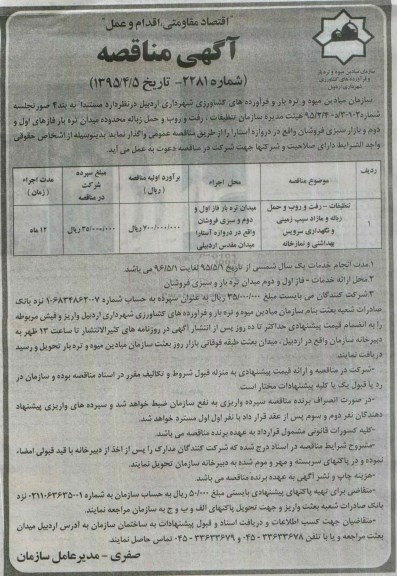 "اقتصاد مقاومتی، اقدام و عمل"
آگهی مناقصه
(شماره ۲۲۸۱- تاریخ ۱۳۹۵/۴/۵)
سازمان میادین میوه و تره بار
و فرآورده های کشاورزی
شهرداری اردبیل
سازمان میادین میوه و تره بار و فرآورده های کشاورزی شهرداری اردبیل درنظردارد مستندا به بند۴ صورتجلسه
شماره۱۰۲-۵/۳- ۹۵/۲/۴ هیئت مدیره سازمان تنظیفات ، رفت و روب و حمل زباله محدوده میدان تره بار فازهای اول و
دوم و بازار سبزی فروشان واقع در دروازه آستارا را از طریق مناقصه عمومی واگذار نماید بدینوسیله از اشخاص حقوقی
واجد الشرایط دارای صلاحیت و شرکتها جهت شرکت در مناقصه دعوت به عمل می آید.
ردیف
موضوع مناقصه
محل اجراء
برآورد اولیه مناقصه (ریال)
مبلغ سپرده شرکت در مناقصه
مدت اجراء (زمان)
۱
تنظیفات - رفت و روب و حمل زباله و مازاد سیب زمینی و نگهداری سرویس بهداشتی و نمازخانه
میدان تره بار فاز اول و دوم و سبزی فروشان واقع در دروازه آستارا میدان مقدس اردبیلی
۷۰۰/۰۰۰/۰۰۰ ریال
۳۵/۰۰۰/۰۰۰ ریال
۱۲ ماه
۱.مدت انجام خدمات یک سال شمسی از تاریخ ۹۵/۵/۱ لغایت ۹۶/۵/۱ می باشد.
۲.محل ارائه خدمات - فاز اول و دوم میدان تره بار و سبزی فروشان
۳.شرکت کنندگان می بایست مبلغ ۳۵/۰۰۰/۰۰۰ ریال به عنوان سپرده به حساب شماره ۱۰۶۸۳۴۸۶۳۰۰۷ نزد بانک
صادرات شعبه بعثت بنام سازمان میادین میوه و تره بار و فرآورده های کشاورزی شهرداری اردبیل واریز و فیش مربوطه
را به انضمام قیمت پیشنهادی حداکثر تا ده روز پس از انتشار آگهی در روزنامه های کثیرالانتشار تا ساعت ۱۳ ظهر به
دبیرخانه سازمان واقع در اردبیل، میدان بعثت طبقه فوقانی بازار روز بعثت سازمان میادین میوه و تره بار تحویل و رسید
دریافت نمایند.
-شرکت در مناقصه و ارائه قیمت پیشنهادی به منزله قبول شروط و تکالیف مقرر در اسناد مناقصه بوده و سازمان در
رد یا قبول یک یا کلیه پیشنهادات مختار است
-در صورت انصراف برنده مناقصه سپرده واریزی به نفع سازمان ضبط خواهد شد و سپرده های واریزی پیشنهاد
دهندگان نفر دوم و سوم پس از عقد قرار داد با نفر اول مسترد خواهد شد.
-کلیه کسورات قانونی مشمول قرارداد به عهده برنده مناقصه می باشد.
-مشروح شرایط مناقصه در اسناد درج شده که شرکت کنندگان مدارک را پس از اخذ از دبیرخانه با قید قبولی امضاء
نموده و در پاکتهای سربسته و مهر و موم شده به دبیرخانه سازمان تحویل نمایند.
-هزینه چاپ و نشر آگهی به عهده برنده مناقصه می باشد.
-متقاضی برای تهیه پاکتهای پیشنهادی بایستی مبلغ ۵۰/۰۰۰ ریال به حساب سازمان به شماره ۰۲۱۱۰۶۳۶۳۵۰۰۱ نزد
بانک صادرات شعبه بعثت واریز و جهت تحویل پاکتهای الف و ب و ج به سازمان مراجعه نمایند.
-متقاضیان جهت کسب اطلاعات و دریافت اسناد و قبول پیشنهادات به ساختمان سازمان به آدرس اردبیل میدان
بعثت مراجعه و یا با تلفن ۳۳۶۳۳۶۷۸-۰۴۵ و ۳۳۶۳۳۶۷۹-۰۴۵ تماس حاصل نمایند.
صفری - مدیرعامل سازمان